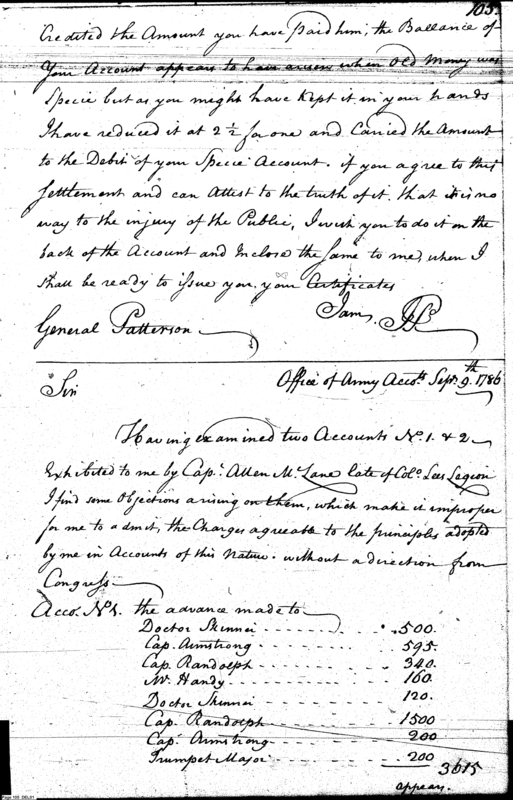 105.
Credited the Amount you have paid him; the Ballance of
Your Account appears to have arisen when Old Money was
Specie but as you might have Kept it in your hands
I have reduced it at 2 ½ for one and Carried the Amount
to the Debit of your Specie Account. if you agree to this
Settlement and can Attest to the truth of it, that it is no
way to the injury of the Public, I wish you to do it on the
back of the Account and Inclose the same to me, when I
shall be ready to issue you, your Certificates
I am, JP
General Patterson
Office of Army Accots. Sepr. 9.th 1786
Sir
Having examined two Accounts No. 1. & 2
Exhibited to me by Cap.t Allen McLane late of Colo. Lees Legion
I find some Objections arising on them, which make it improper
for me to admit, the Charges agreeable to the principles adopted
by me in Accounts of this Nature. without a direction from
Congress
Acco. No. 1. the advance made to
Doctor Skinner - - - - - - 500.
Cap. Armstrong - - - - - - 595.
Cap. Randolph - - - - - - 340.
Mr. Handy - - - - - - 160.
Doctor Skinner - - - - - - 120.
Cap. Randolph - - - - - - 1500
Cap. Armstrong - - - - - - 200
Trumpet Major - - - - - - 200 3615
appears.